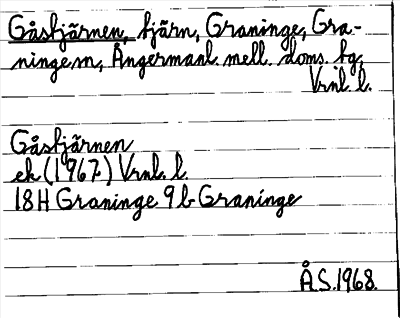 Gåstjärnen, tjärn, Graninge, Gra-
ninge sn, Ångermanl. mell. doms. tg,
Vrnl. l.
Gåstjärnen
ek (1967) Vrnl. l.
18H Graninge 9b Graninge
Å.S. 1968.